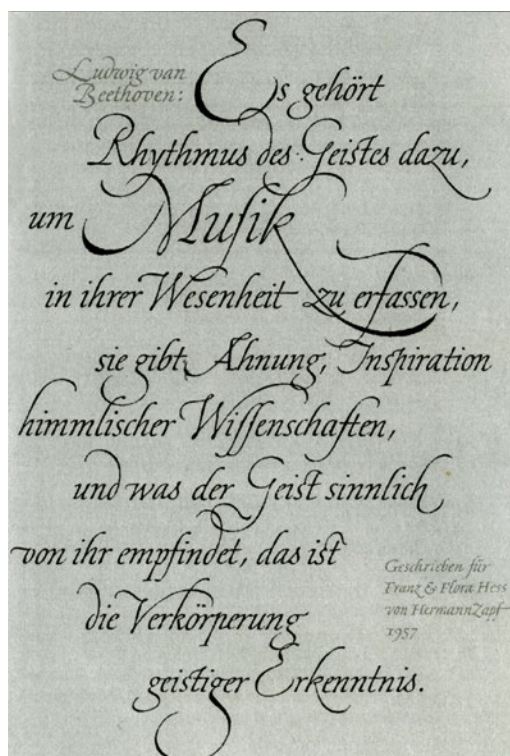 Ludwig van
Beethoven:
Es gehört
Rhythmus des Geistes dazu,
um Muſik
in ihrer Wesenheit zu erfassen,
sie gibt Ahnung, Inspiration
himmlischer Wiſſenschaften,
und was der Geist sinnlich
von ihr empfindet, das ist
die Verkörperung
geistiger Erkenntnis.
Geschrieben für
Franz & Flora Hess
von Hermann Zapf
1957